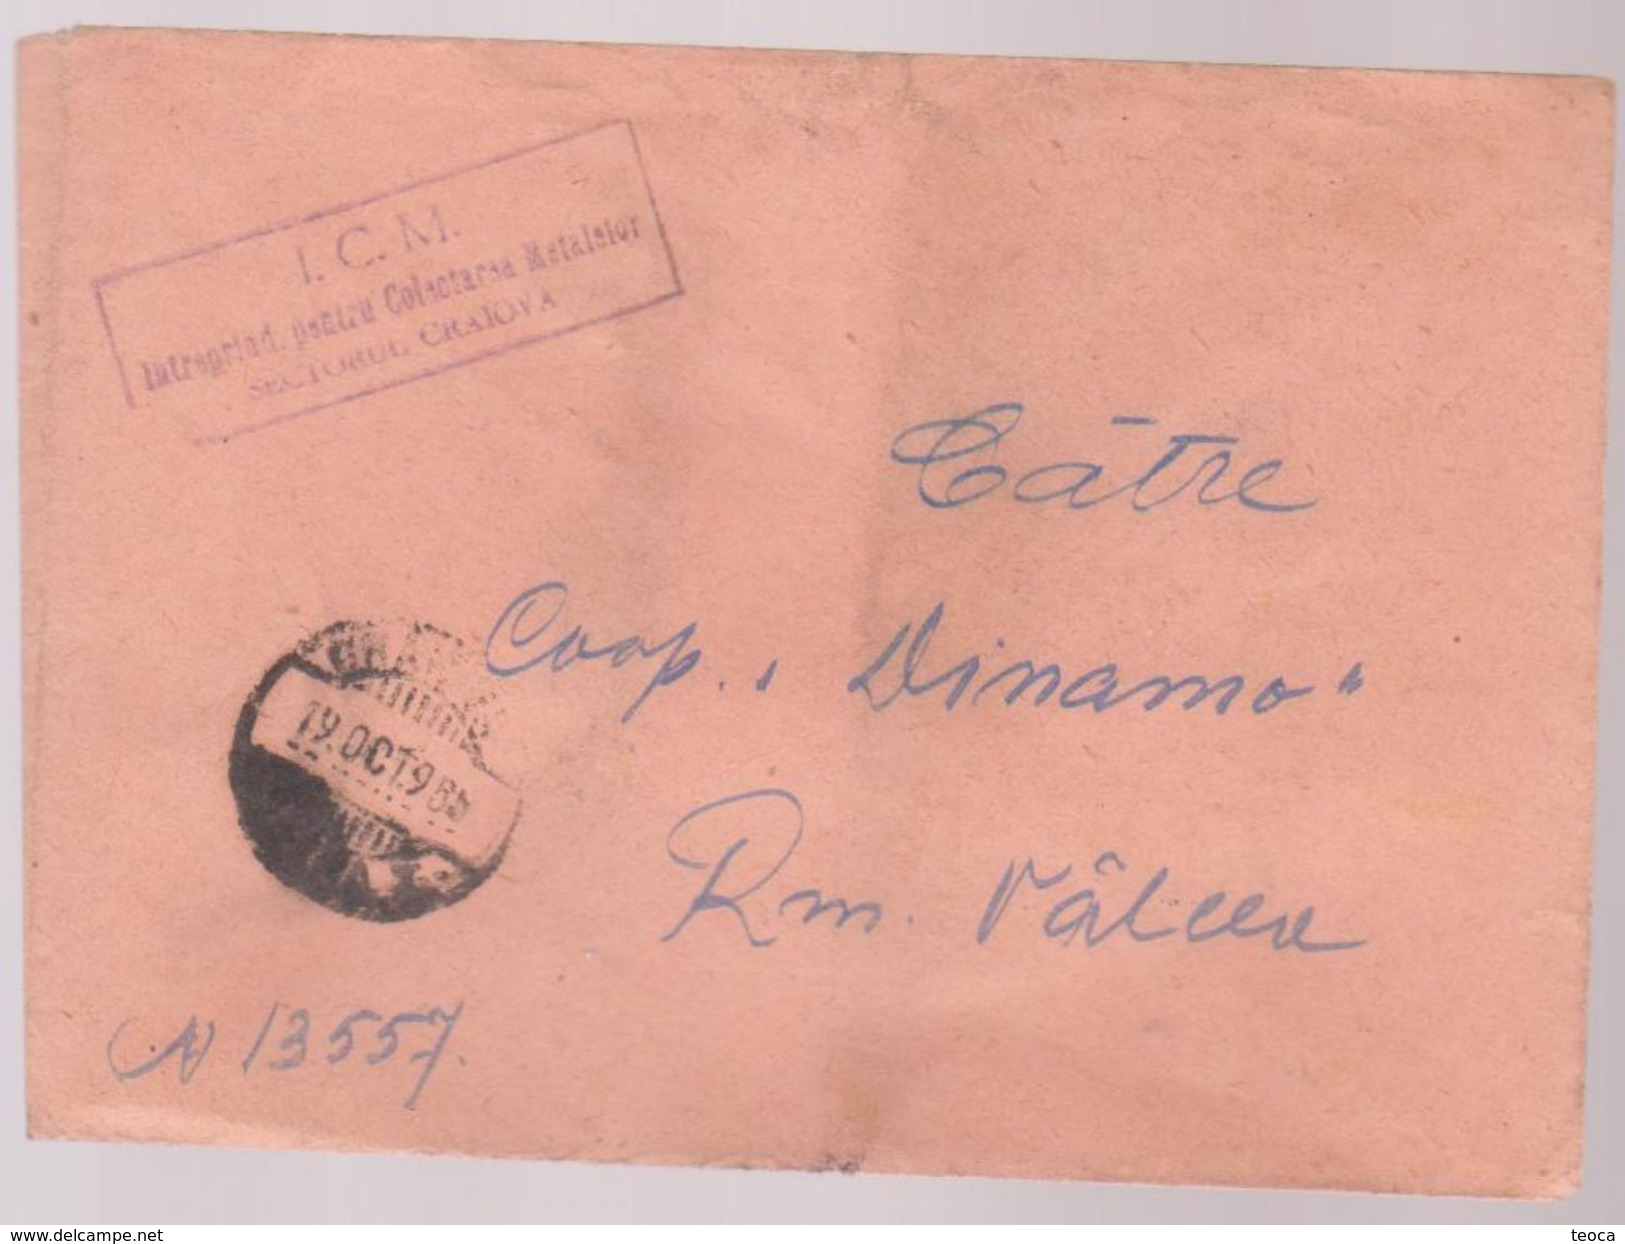 I. C. M.
Intreprind. pentru Colectarea Metalelor
SECTORUL CRAIOVA
Către
Coop. „Dinamo"
Rm. Vâlcea
19.OCT.9
N 13557.
delcampe.net
teoca